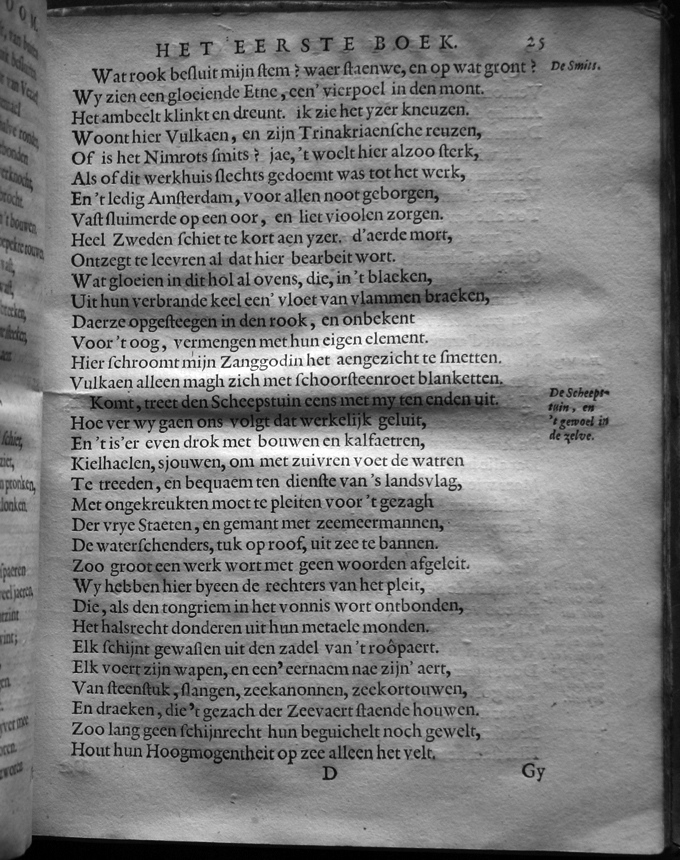 HET EERSTE BOEK. 25
Wat rook besluit mijn stem? waer staenwe, en op wat gront? De Smits.
Wy zien een gloeiende Etne, een' vierpoel in den mont.
Het ambeelt klinkt en dreunt. ik zie het yzer kneuzen.
Woont hier Vulkaen, en zijn Trinakriaensche reuzen,
Of is het Nimrots smits? jae, 't woelt hier alzoo sterk,
Als of dit werkhuis slechts gedoemt was tot het werk,
En 't ledig Amsterdam, voor allen noot geborgen,
Vast sluimerde op een oor, en liet vioolen zorgen.
Heel Zweden schiet te kort aen yzer. d'aerde mort,
Ontzegt te leevren al dat hier bearbeit wort.
Wat gloeien in dit hol al ovens, die, in 't blaeken,
Uit hun verbrande keel een' vloet van vlammen braeken,
Daerze opgesteegen in den rook, en onbekent
Voor 't oog, vermengen met hun eigen element.
Hier schroomt mijn Zanggodin het aengezicht te smetten.
Vulkaen alleen magh zich met schoorsteenroet blanketten.
Komt, treet den Scheepstuin eens met my ten enden uit.
De Scheeps-
tuin, en
't gewoel in
de zelve.
Hoe ver wy gaen ons volgt dat werkelijk geluit,
En 't is'er even drok met bouwen en kalfaetren,
Kielhaelen, sjouwen, om met zuivren voet de watren
Te treeden, en bequaem ten dienste van 's landsvlag,
Met ongekreukten moet te pleiten voor 't gezagh
Der vrye Staeten, en gemant met zeemeermannen,
De waterschenders, tuk op roof, uit zee te bannen.
Zoo groot een werk wort met geen woorden afgeleit.
Wy hebben hier byeen de rechters van het pleit,
Die, als den tongriem in het vonnis wort ontbonden,
Het halsrecht donderen uit hun metaele monden.
Elk schijnt gewassen uit den zadel van 't roôpaert.
Elk voert zijn wapen, en een' eernaem nae zijn' aert,
Van steenstuk, slangen, zeekanonnen, zeekortouwen,
En draeken, die 't gezach der Zeevaert staende houwen.
Zoo lang geen schijnrecht hun beguichelt noch gewelt,
Hout hun Hoogmogentheit op zee alleen het velt.
D Gy